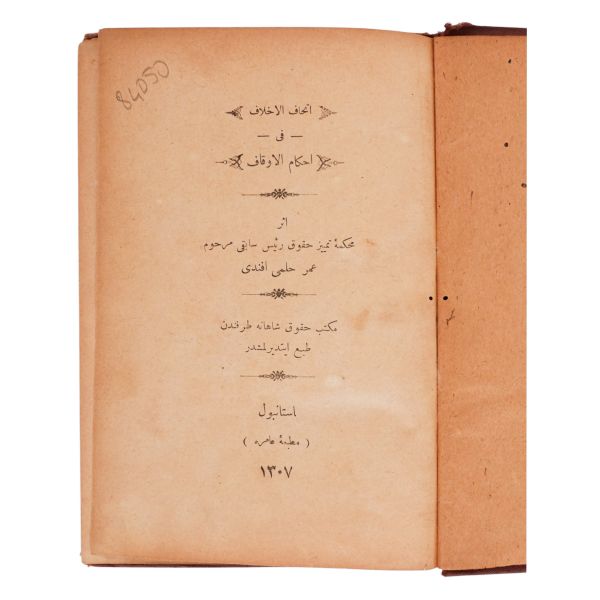 84050
اتحاف الاخلاف
فی
احكام الاوقاف
اثر
محكمۀ تمییز حقوق رئیس سابقی مرحوم
عمر حلمی افندی
مكتب حقوق شاهانه طرفندن
طبع ایتدیرلمشدر
استانبول
( مطبعۀ عامره )
١٣٠٧